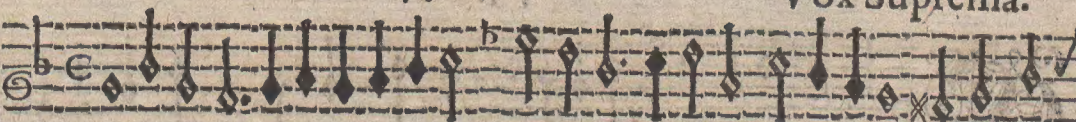 Vox Suprema.